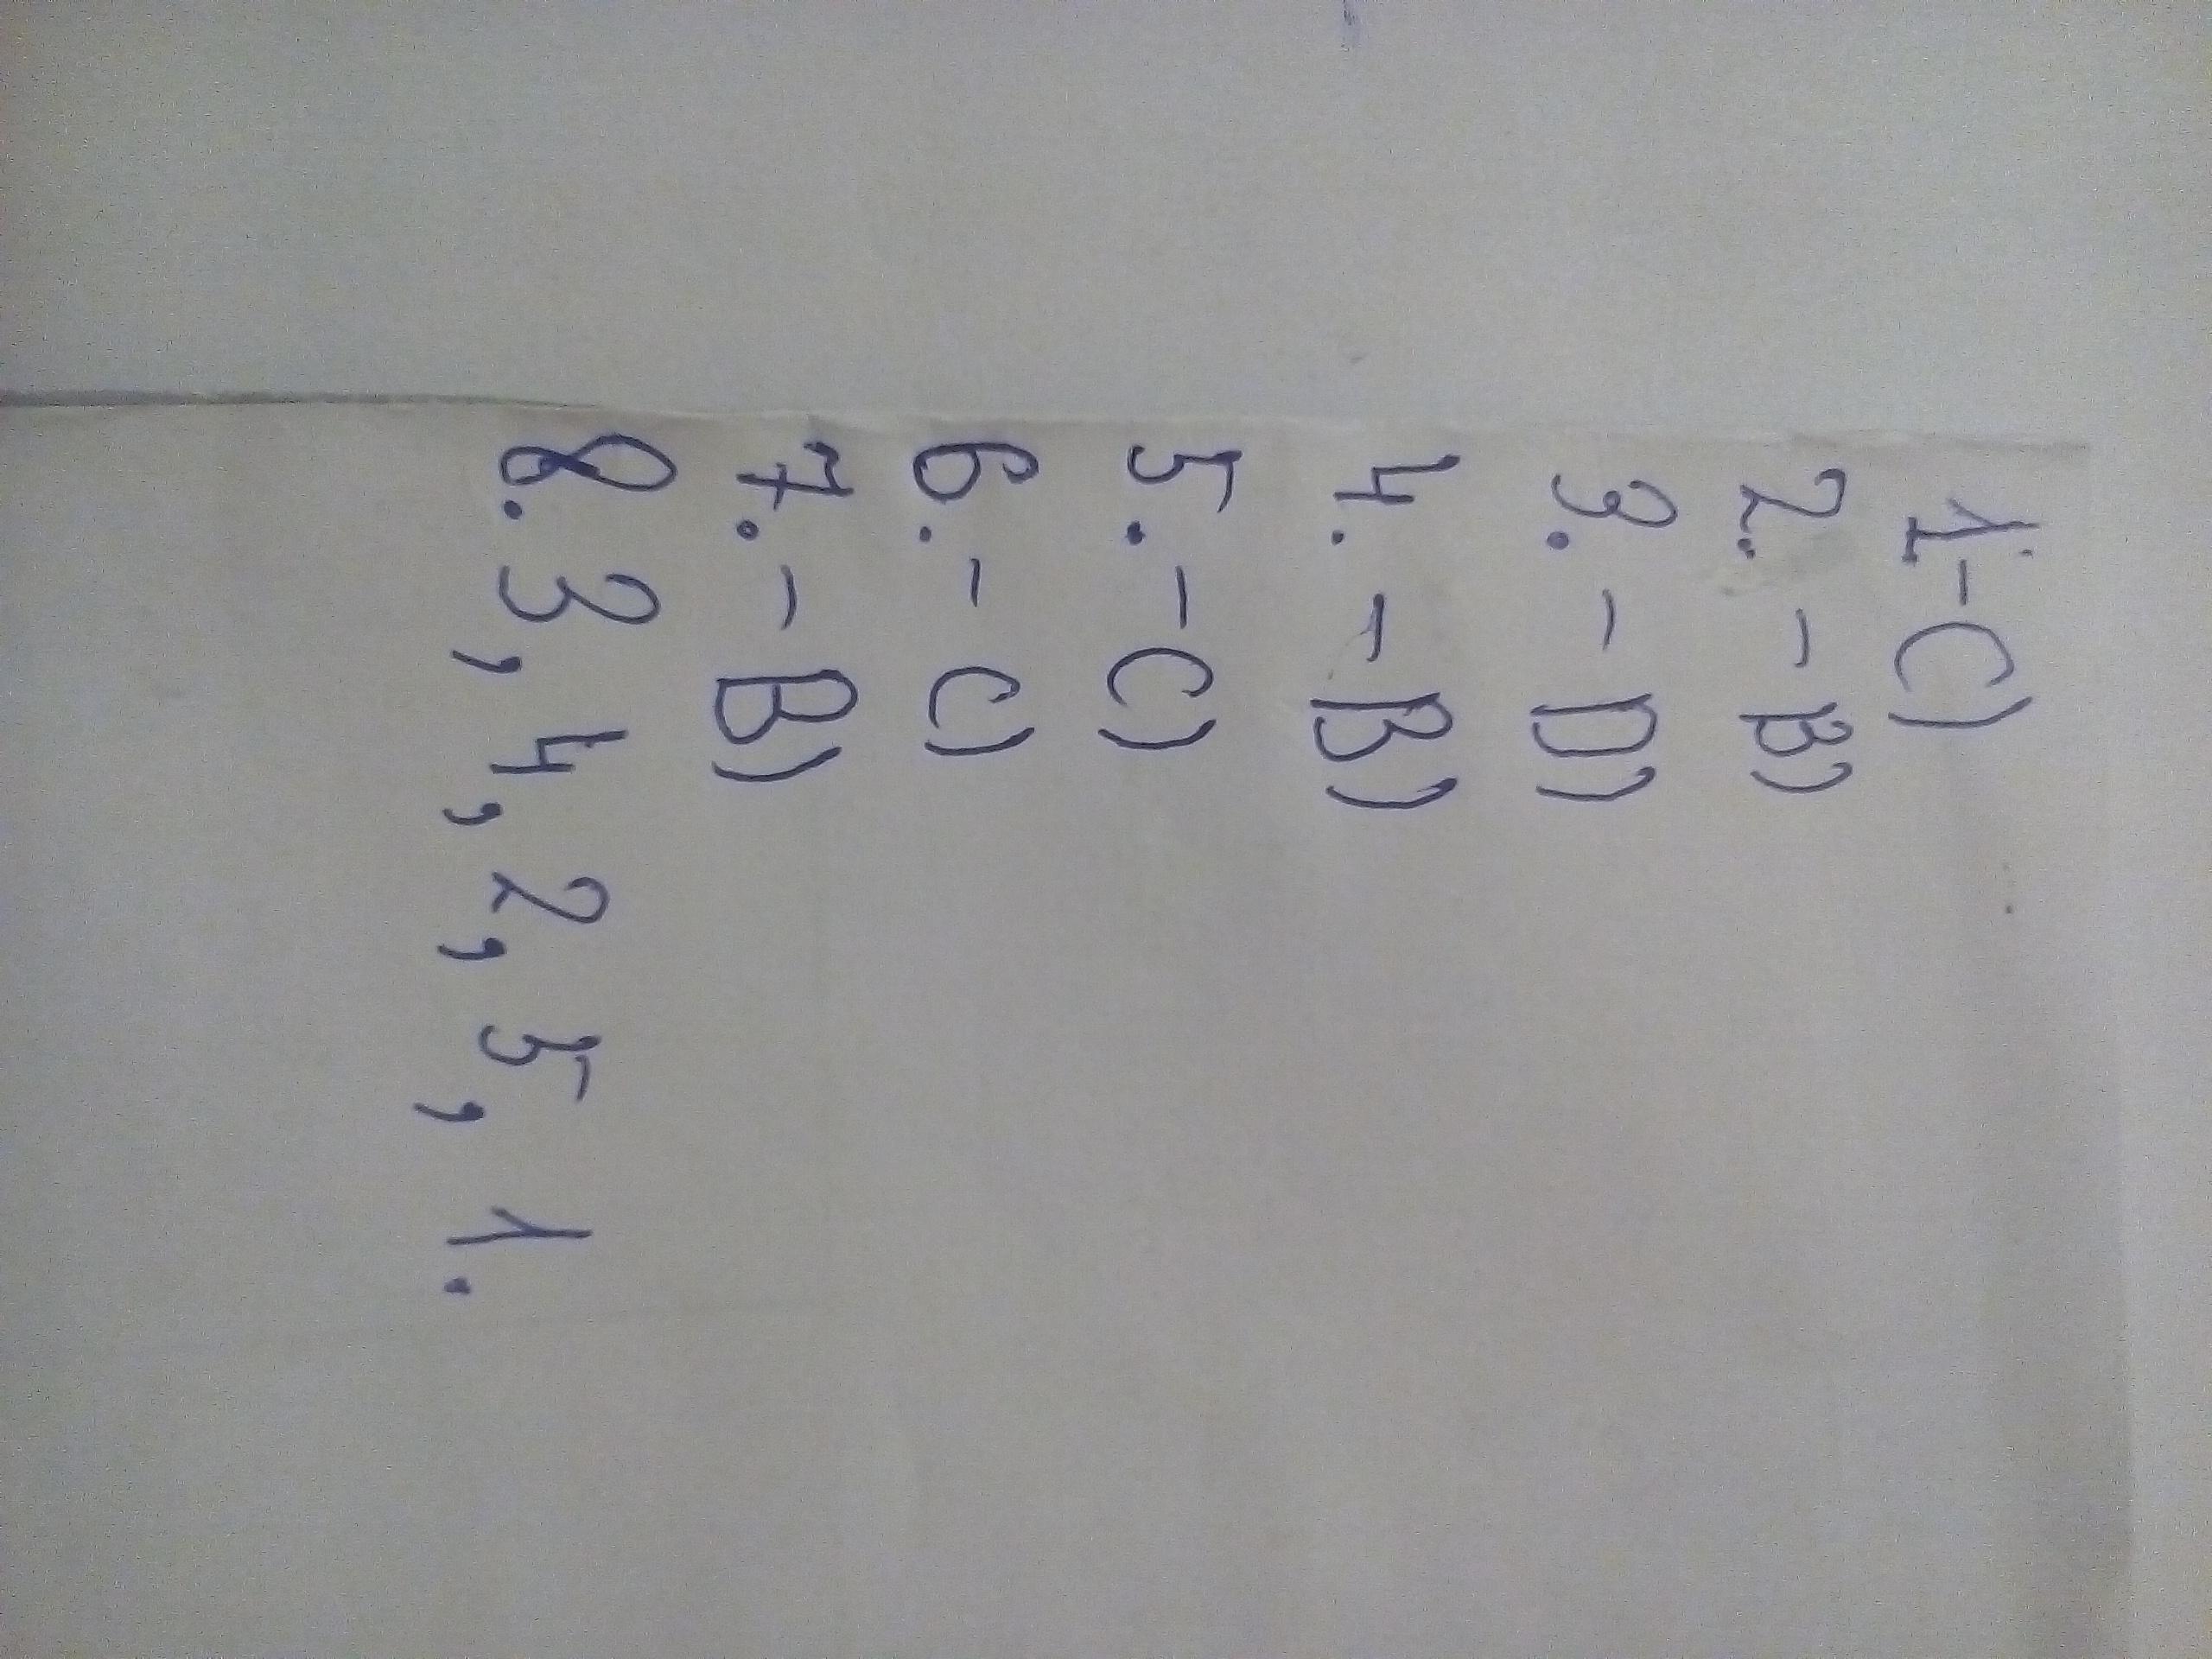 1-C)
2. - B)
3. - D)
4. - B)
5. - C)
6. - C)
7. - B)
8. 3, 4, 2, 5, 1.